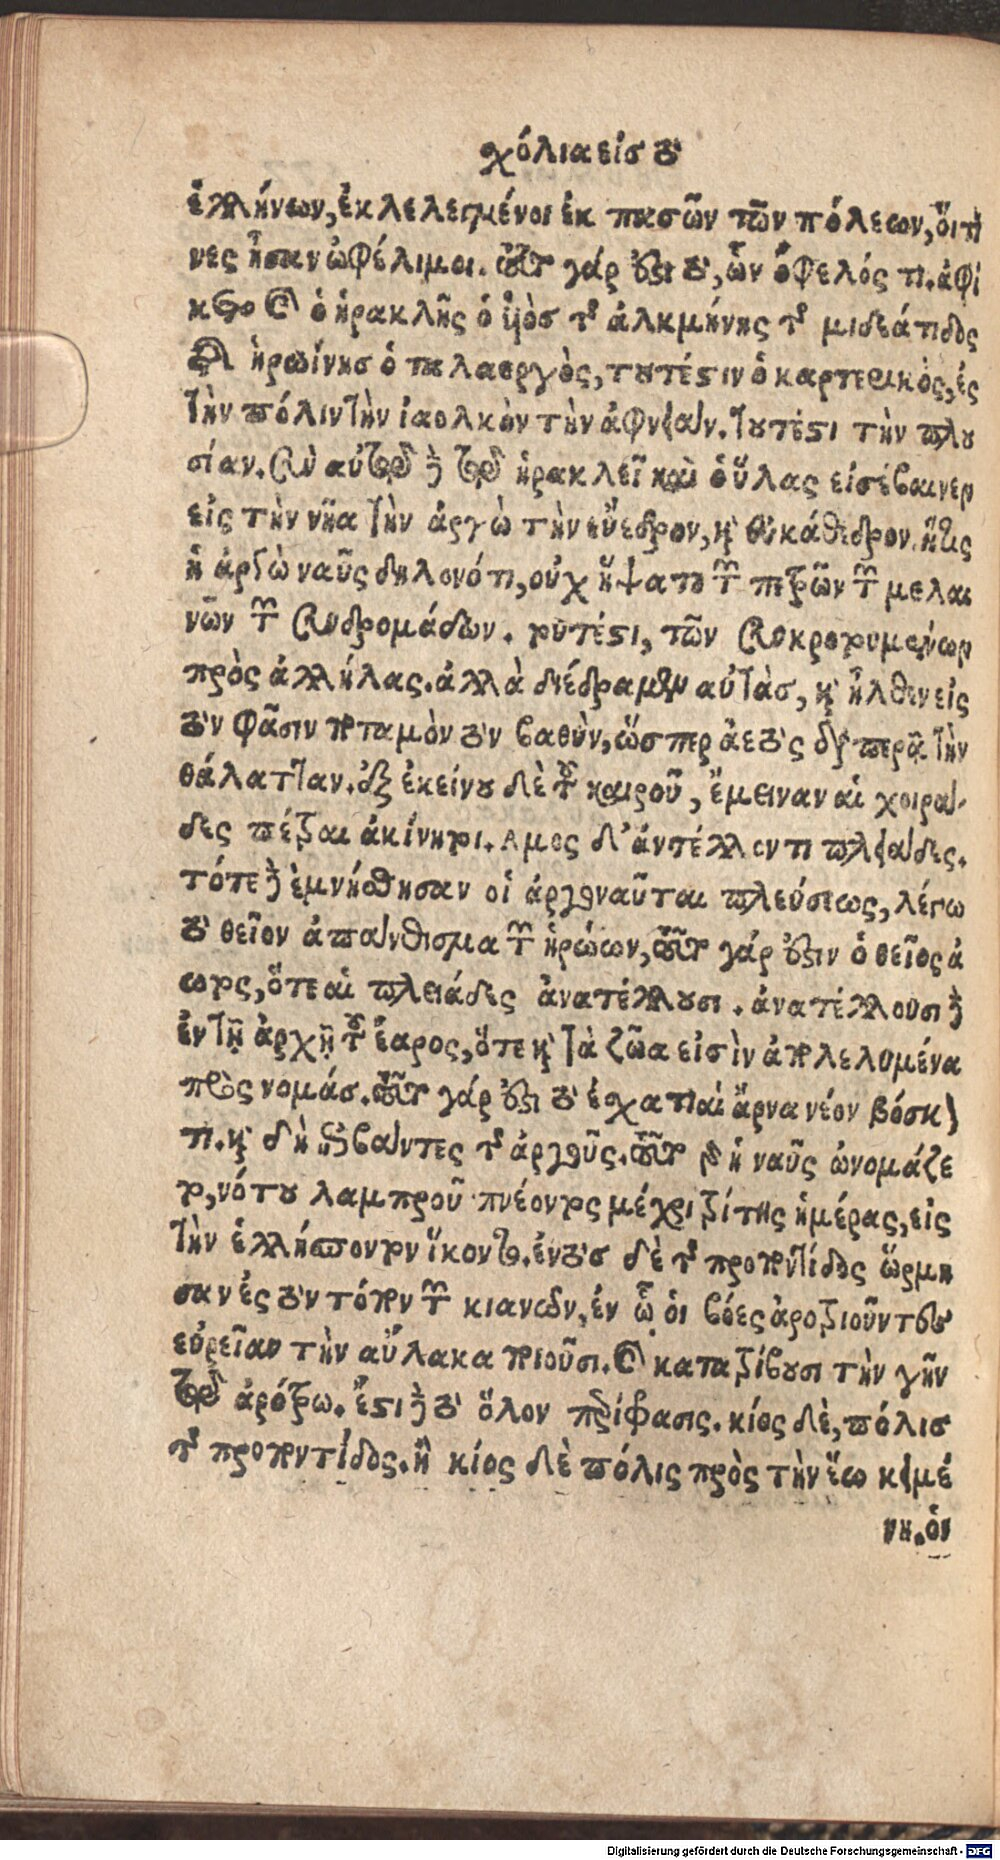 χόλια εἰς τὸ
ἑλλήνων, ἐκλελεγμένοι ἐκ πασῶν τῶν πόλεων, οἵτι
νες ἦσαν ὠφέλιμοι. τοῦτο γάρ ἐστι τὸ, ὧν ὄφελός τι. ἀφί
κετο καὶ ὁ ἡρακλῆς ὁ ὑιὸσ τῆς ἀλκμήνης τῆς μιδεάτιδος
ἡρωίνησ ὁ ταλαεργὸς, τουτέστιν ὁ καρτερικὸς, ἐς
τὴν πόλιν τὴν ἰαολκὸν τὴν ἀφνειάν. τουτέστι τὴν πλου
σίαν. σὺν αὐτῷ δὲ τῷ ἡρακλεῖ καὶ ὁ ὕλας εἰσέβαινεν
εἰς τὴν νῆα τὴν ἀργὼ τὴν εὔεδρον, καὶ εὐκάθεδρον. ἥτις
ἡ ἀργὼ ναῦς δηλονότι, οὐχ ἥψατο τῶν πετρῶν τῶν μελαι
νῶν τῶν συνδρομάδων. τουτέστι, τῶν συγκρουομένων
πρὸς ἀλλήλας. ἀλλὰ διέδραμεν αὐτὰσ, καὶ ἦλθεν εἰς
τὸν φᾶσιν ποταμὸν τὸν βαθὺν, ὥσπερ ἀετὸς διαπερᾷ τὴν
θάλατταν. ἐξ ἐκείνου δὲ τοῦ καιροῦ, ἔμειναν αἱ χοιρά-
δες πέτραι ἀκίνητοι. Αμος δ’ ἀντέλλοντι πλειάδες.
τότε δὲ ἐμνήσθησαν οἱ ἀργοναῦται πλεύσεως, λέγω
τὸ θεῖον ἀπάνθισμα τῶν ἡρώων, τοῦτο γάρ ἐστιν ὁ θεῖος ἄ
ωτος, ὅτε αἱ πλειάδες ἀνατέλλουσι. ἀνατέλλουσι δὲ
ἐν τῇ ἀρχῇ τοῦ ἔαρος, ὅτε καὶ τὰ ζῶα εἰσὶν ἀπολελυμένα
πρὸς νομάσ. τοῦτο γάρ ἐστι τὸ ἐσχατιαὶ ἄρνα νέον βόσκον
τι. καὶ δὴ ἐμβάντες τῆς ἀργοῦς. τοῦτο γὰρ ἡ ναῦς ὠνομάζε
το, νότου λαμπροῦ πνέοντος μέχρι τρίτης ἡμέρας, εἰς
τὴν ἑλλήσποντον ἵκοντο. ἐντὸσ δὲ τῆς προποντίδος ὥρμη
σαν ἐς τὸν τόπον τῶν κιανῶν, ἐν ᾧ οἱ βόες ἀροτριοῦντες
εὐρεῖαν τὴν αὔλακα ποιοῦσι. καὶ κατατρίβουσι τὴν γῆν
τῷ ἀρότρῳ. ἔστι δὲ τὸ ὅλον περίφρασις. κίος δὲ, πόλισ
τῆς προποντίδος. ἢ κίος δὲ πόλις πρὸς τὴν ἕω κειμέ
νη. οἱ